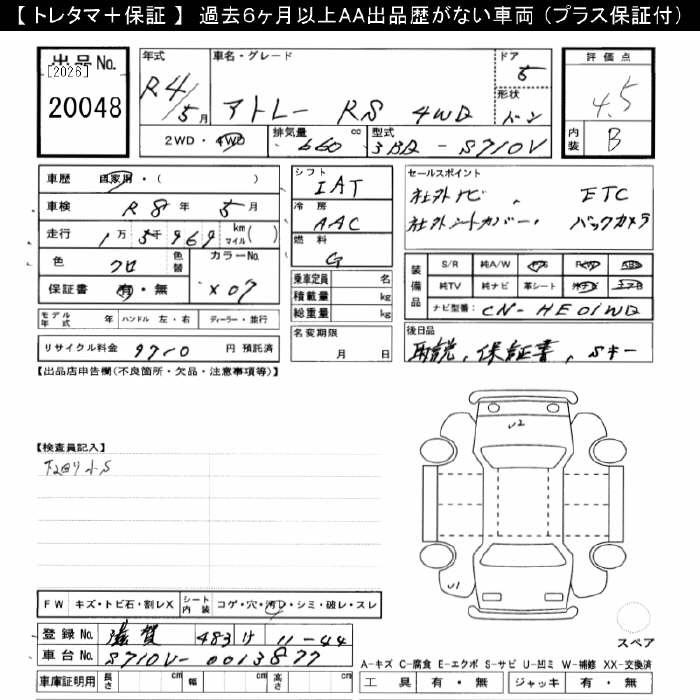 【 トレタマ＋保証 】 過去6ヶ月以上AA出品歴がない車両 (プラス保証付)
出品 No.
[2026]
20048
年式
R4/5 月
車名・グレード
アトレー RS 4WD
ドア
5
形状
バン
評価点
4.5
内装
B
2WD・4WD
排気量
660 cc
型式
3BD - S710V
車歴 自家用・( )
車検 R8 年 5 月
走行 1 万 5 千 969 km マイル ( )
色 クロ 色替
カラーNo.
X07
保証書 有・無
モデル年式 年 ハンドル 左・右 ディーラー・並行
リサイクル料金 9710 円 預託済
シフト
IAT
冷房
AAC
燃料
G
乗車定員 名
積載量 kg
総重量 kg
名変期限
月 日
セールスポイント
社外ナビ 、 ETC
社外シートカバー・ バックカメラ
装備品
S/R 純A/W P/S P/W ABS
純TV 純ナビ 革シート
ナビ型番: CN-HE01WD
後日品
取説、保証書、Sキー
【出品店申告欄(不良箇所・欠品・注意事項等)】
【検査員記入】
下回り小S
U2
U1
FW キズ・トビ石・割レX シート内装 コゲ・穴・汚レ・シミ・破レ・スレ
登録 No. 滋賀 483 け 11-44
車台 No. S710V-0013877
車庫証明用 長さ cm 幅 cm 高さ cm
スペア
A-キズ C-腐食 E-エクボ S-サビ U-凹ミ W-補修 XX-交換済
工具 有・無 ジャッキ 有・無